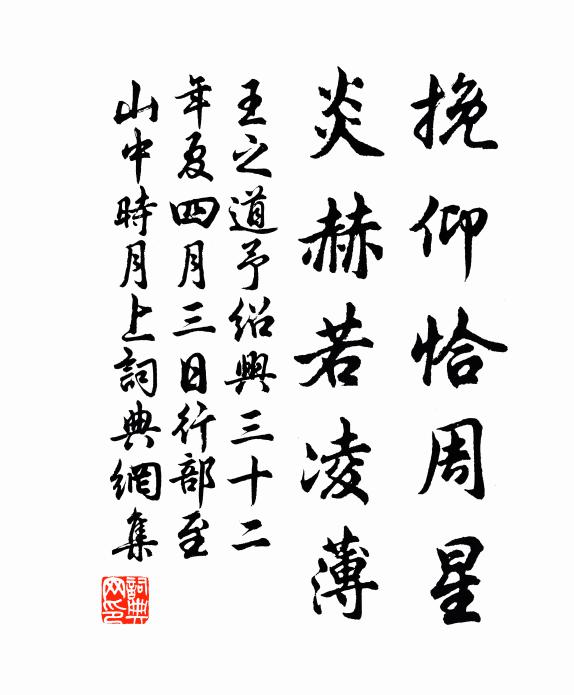 挽仰恰周星
炎赫若凌薄
王之道予紹興三十二
年夏四月三日行部至
山中時月上詞典網集
詞典網印